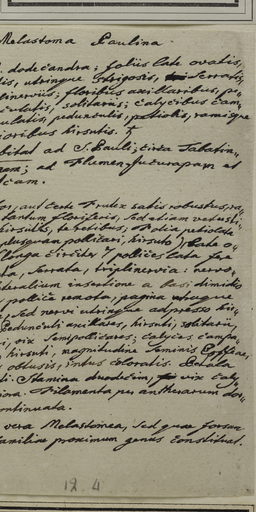 Melastoma Paulina
dodecandra; foliis late ovatis,
utrinque strigosis, serratis,
floribus axillaribus, pe-
solitariis; calycibus cam-
pedunculis, petiolis, ramisque
hirsutis.
ad S. Pauli; circa Tabatin-
ad Flumen et
Frutex satis robustus, ra-
floriferis, sed etiam vetusti-
hirsutis, teretibus. Folia petiolata
pollicari, hirsuto) late o-
longa circiter 7 pollices lata fere
serrata, triplinervia: nervo-
insertione a basi dimidio
pollice remota, pagina utraque
sed nervi utrinque adpresso hir-
Pedunculi axillares, hirsuti, solitarii,
vix semipollicares; calyces campa-
hirsuti, magnitudine seminis Coffeae,
obtusis, intus coloratis. Petala
Stamina duodecim, vix caly-
Filamenta per antherarum dor-
continuata.
vera Melastomea, sed quae forsan
familiae proximum genus constituat.
12 4